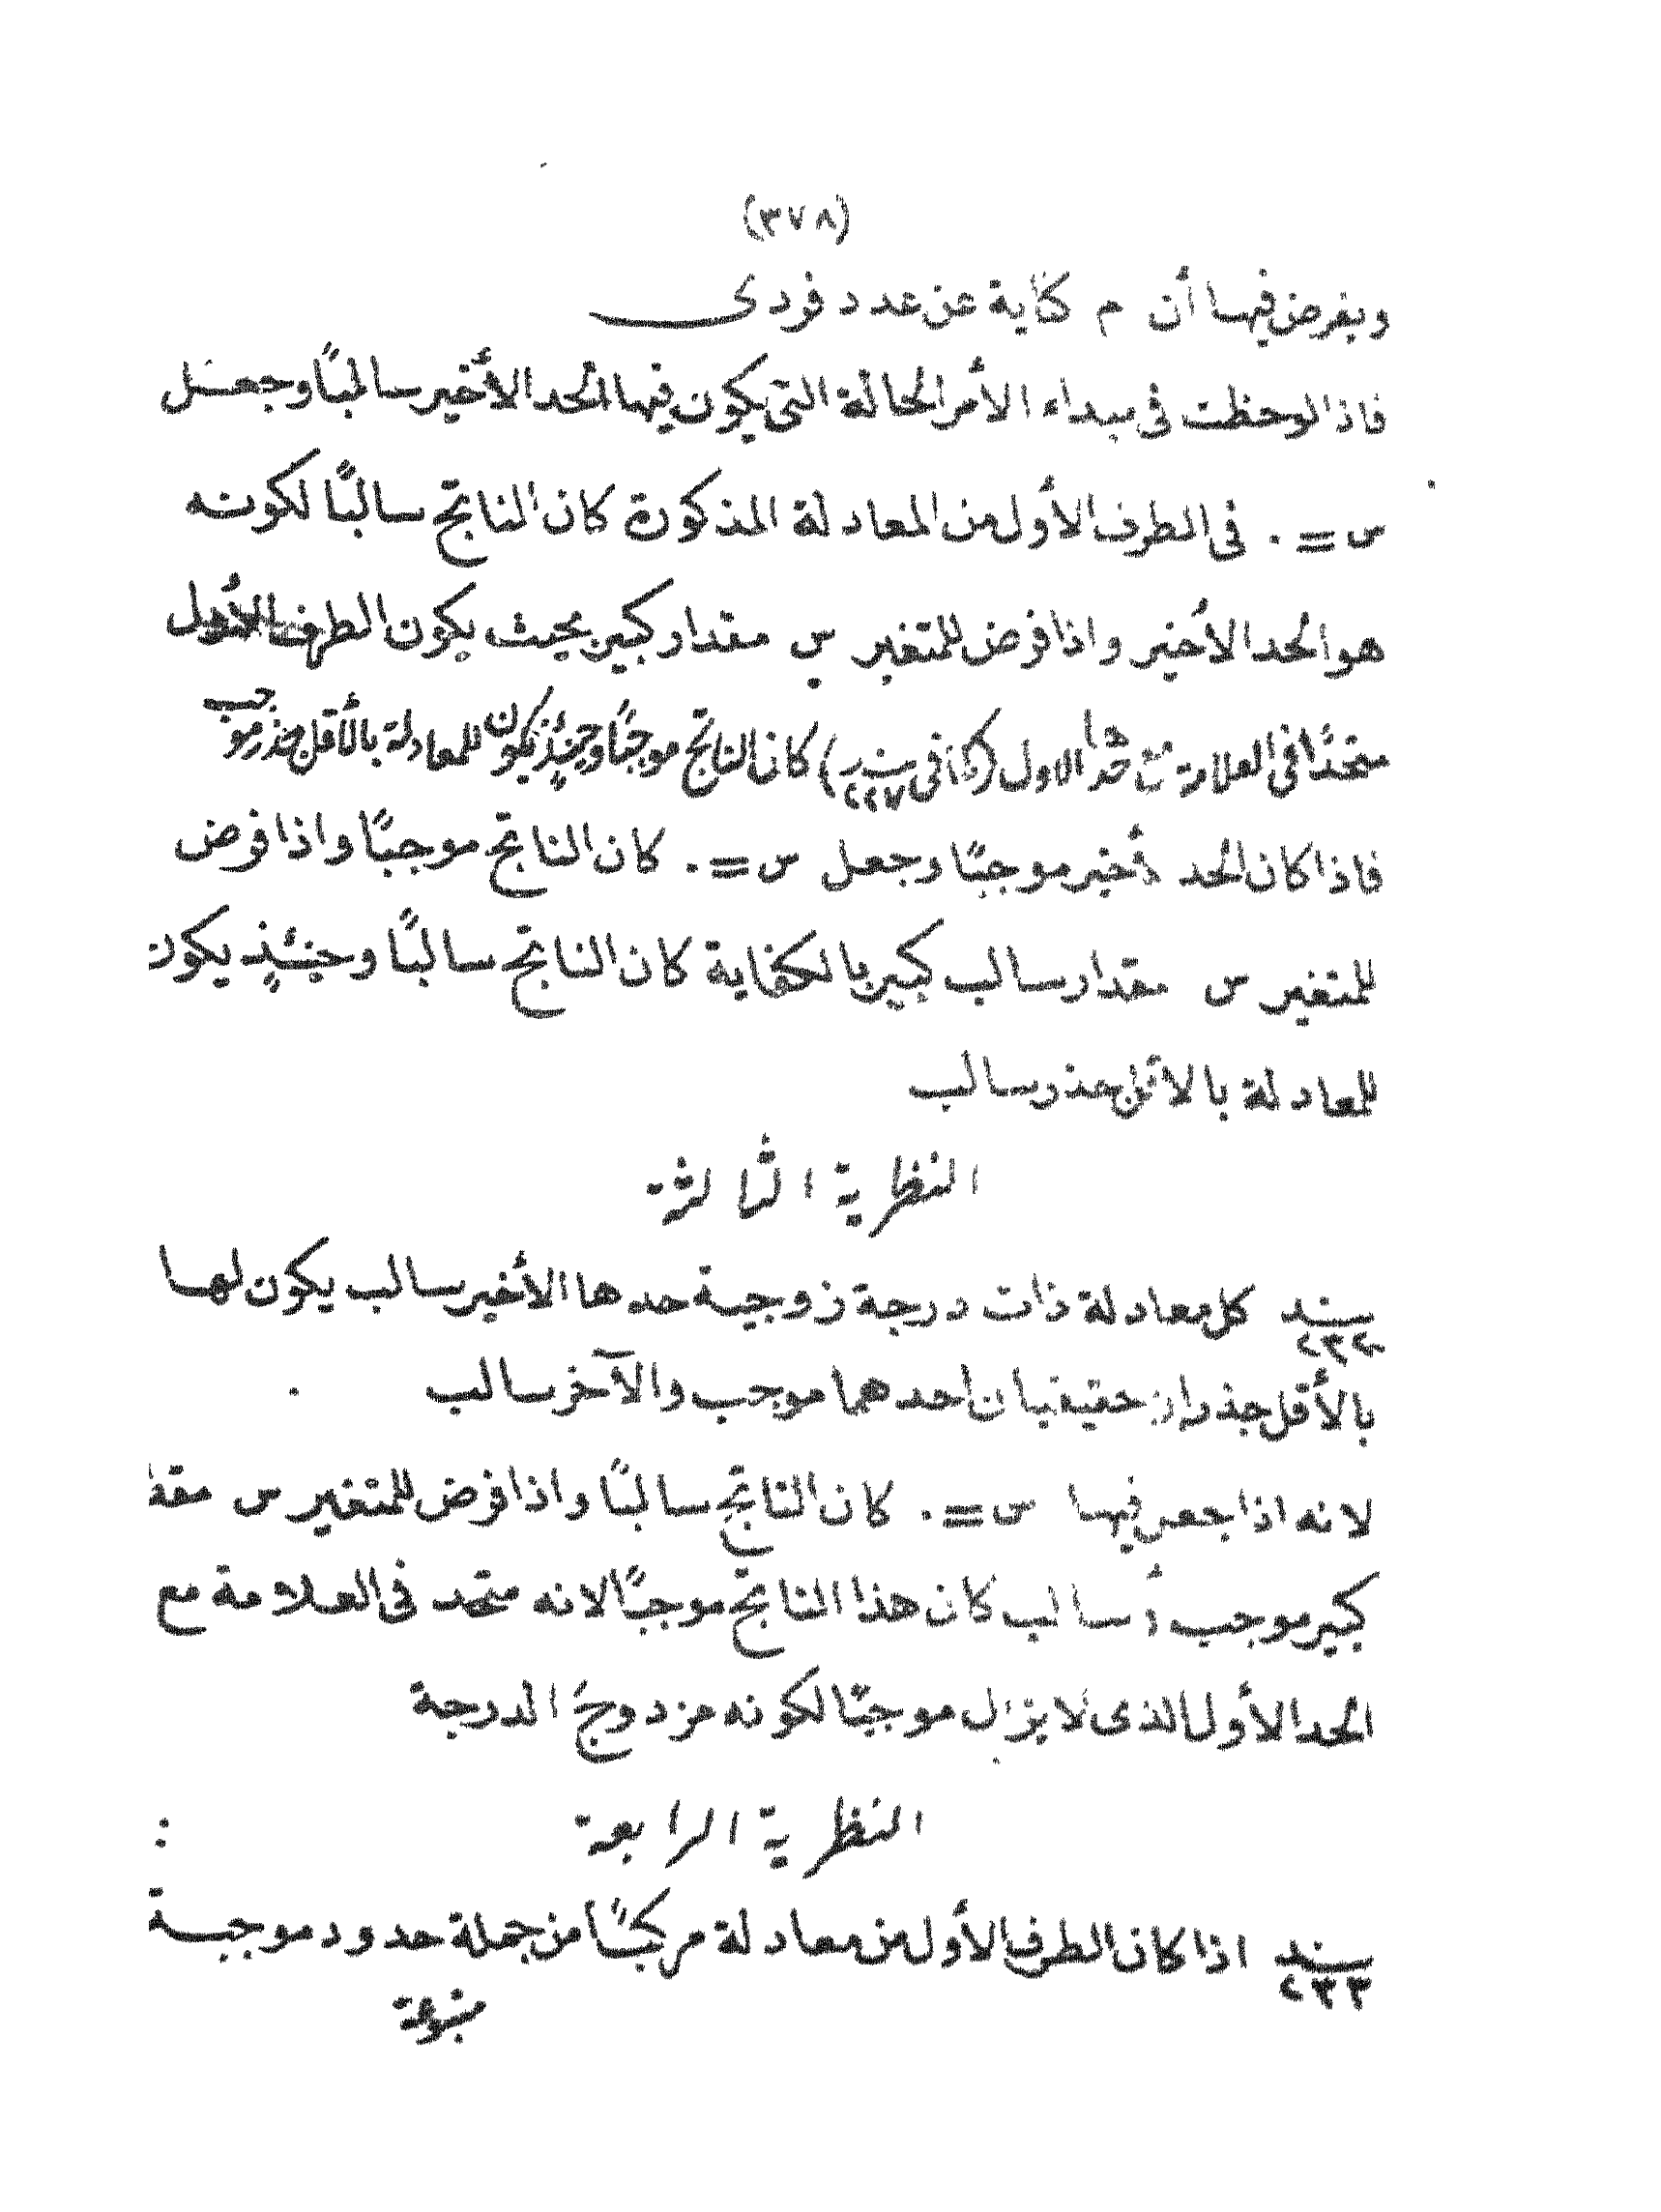 (٣٧٨)
ويفرض فيها أن م كناية عن عدد فردى
فاذا لوحظت فى مبداء الأمر الحالة التى يكون فيها الحد الأخير سالبًا وجعل
س = ٠ فى الطرف الأول من المعادلة المذكورة كان الناتج سالبًا لكونه
هو الحد الأخير واذا فرض للمتغير س مقدار كبير بحيث يكون الطرف الأول
متحدًا فى العلامة مع حدها الاول (كما فى سند ٢٢٧) كان الناتج موجبًا وحينئذٍ يكون للمعادلة بالأقل جذر موجب
فاذا كان الحد الأخير موجبًا وجعل س = ٠ كان الناتج موجبًا واذا فرض
للمتغير س مقدار سالب كبير بالكفاية كان الناتج سالبًا وحينئذٍ يكون
للمعادلة بالأقل جذر سالب
النظرية الثالثة
سند ٢٣٢ كل معادلة ذات درجة زوجية حدها الأخير سالب يكون لها
بالأقل جذران حقيقيان احدهما موجب والآخر سالب
لانه اذا جعل فيها س = ٠ كان الناتج سالبًا واذا فرض للمتغير س
كبير موجب أو سالب كان هذا الناتج موجبًا لانه متحد فى العلامة مع
الحد الأول الذى لا يزال موجبًا لكونه مزدوج الدرجة
النظرية الرابعة
سند ٢٣٣ اذا كان الطرف الأول من معادلة مركبًا من جملة حدود موجبة
متبوعة